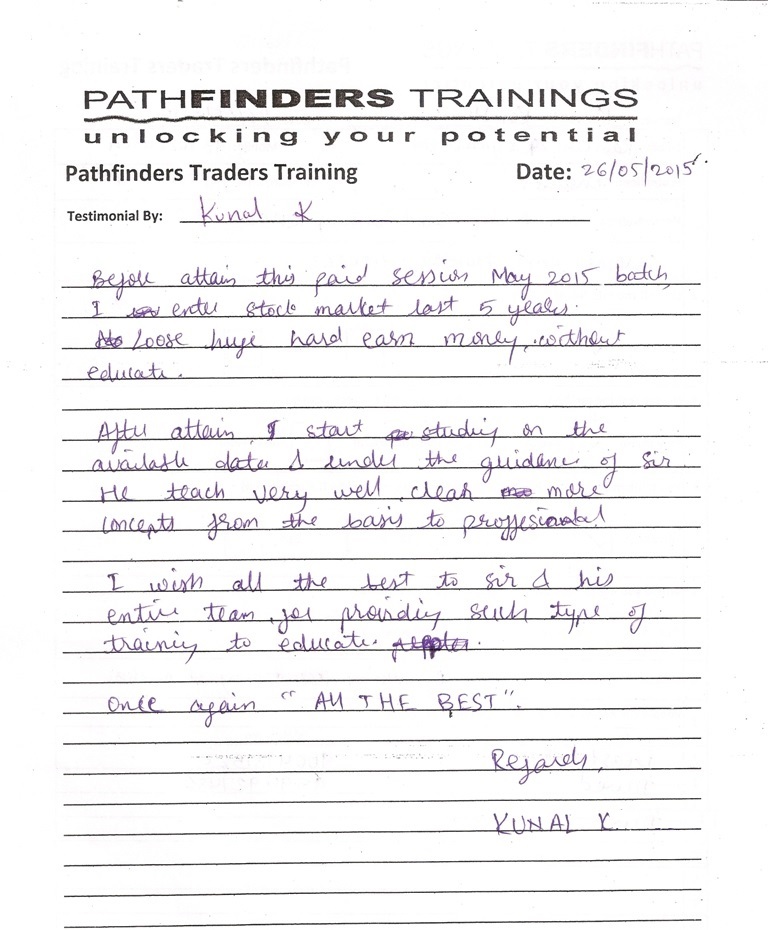 PATHFINDERS TRAININGS
unlocking your potential
Pathfinders Traders Training Date: 26/05/2015
Testimonial By: Kunal K
Before attain this paid session May 2015 batch,
I enter stock market last 5 years.
Loose huge hard earn money, without
educate.
After attain, I start studing on the
available data & under the guidance of sir
He teach very well, clear more
concepts from the basis to proffesional
I wish all the best to sir & his
entire team, for providing such type of
training to educate.
Once again "All THE BEST".
Regards,
KUNAL K.